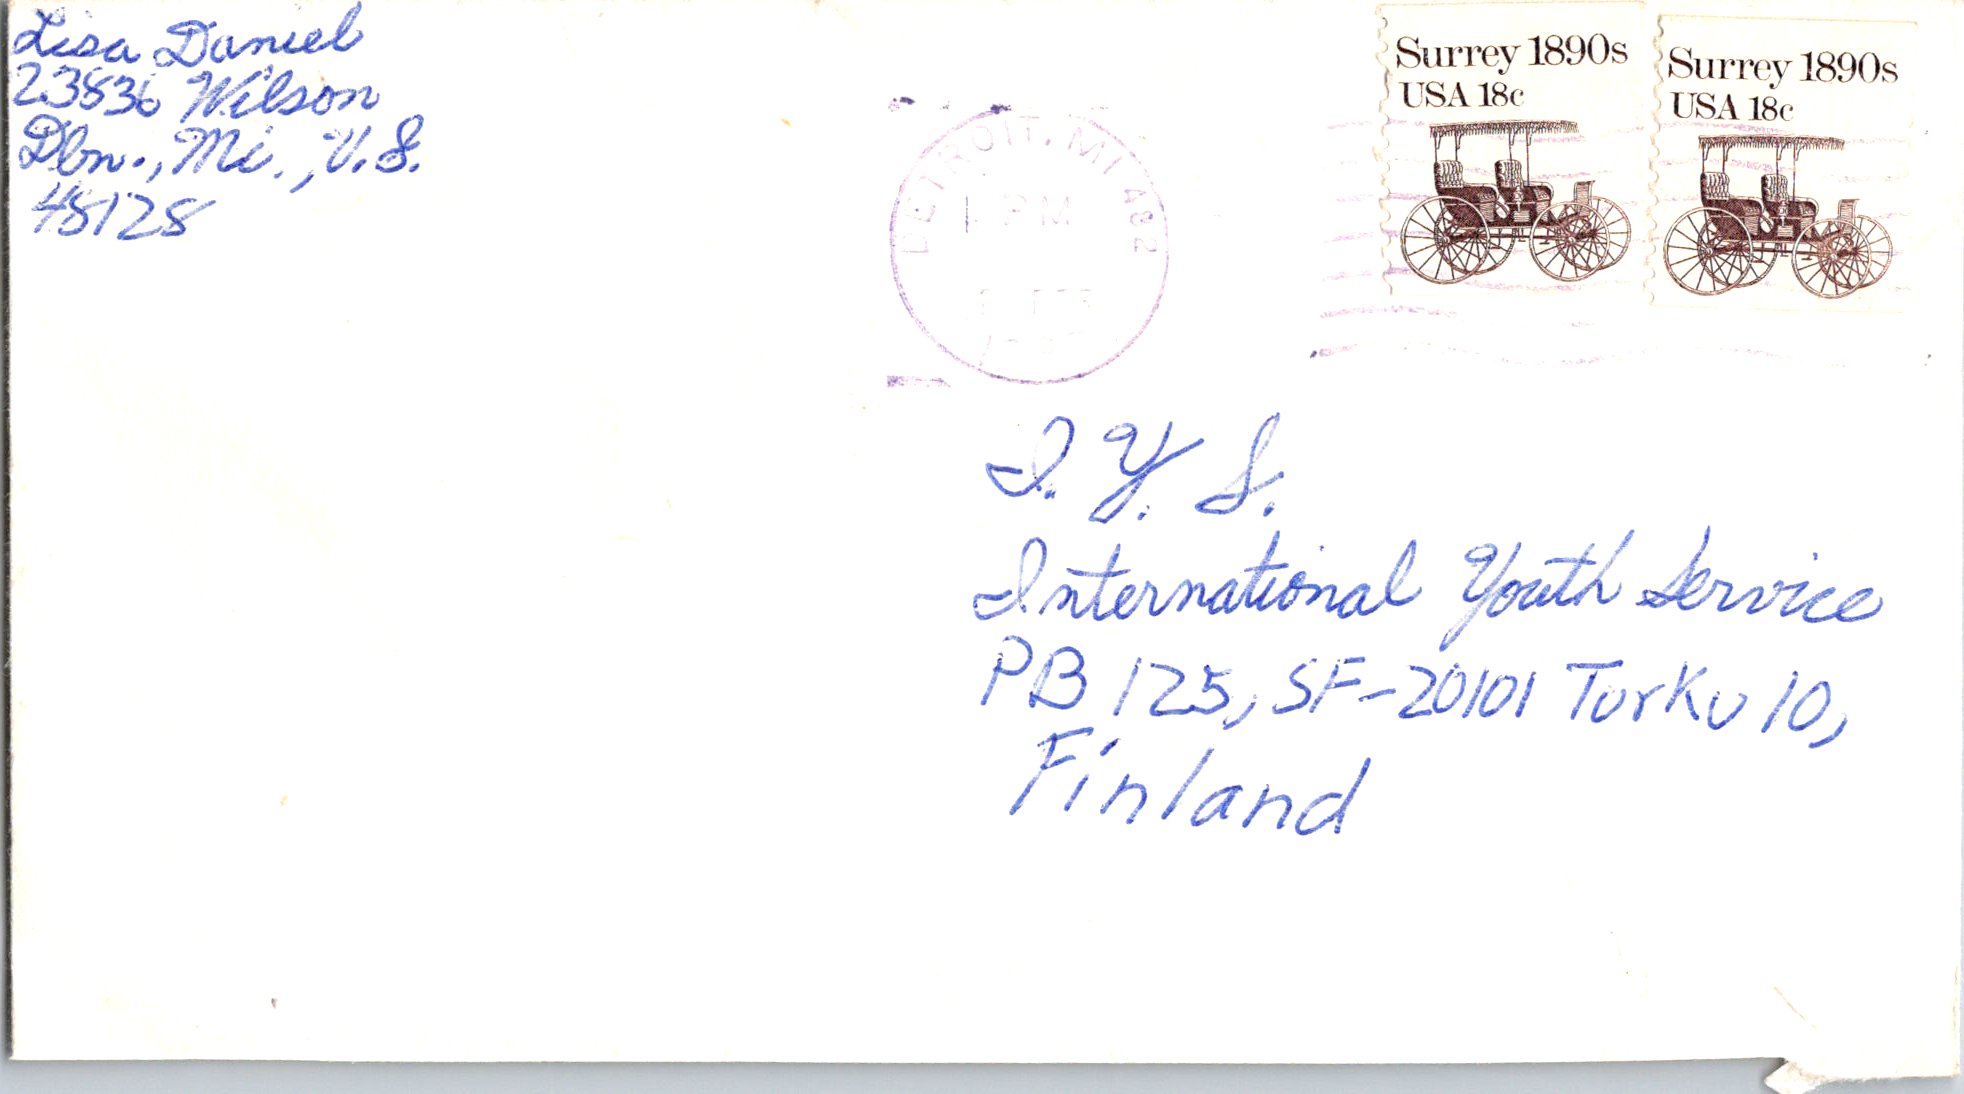 Lisa Daniel
23836 Wilson
Dbn., Mi., U.S.
48128
DETROIT, MI 482
PM
Surrey 1890s
USA 18c
Surrey 1890s
USA 18c
I.Y.S.
International Youth Service
PB 125, SF-20101 Turku 10,
Finland